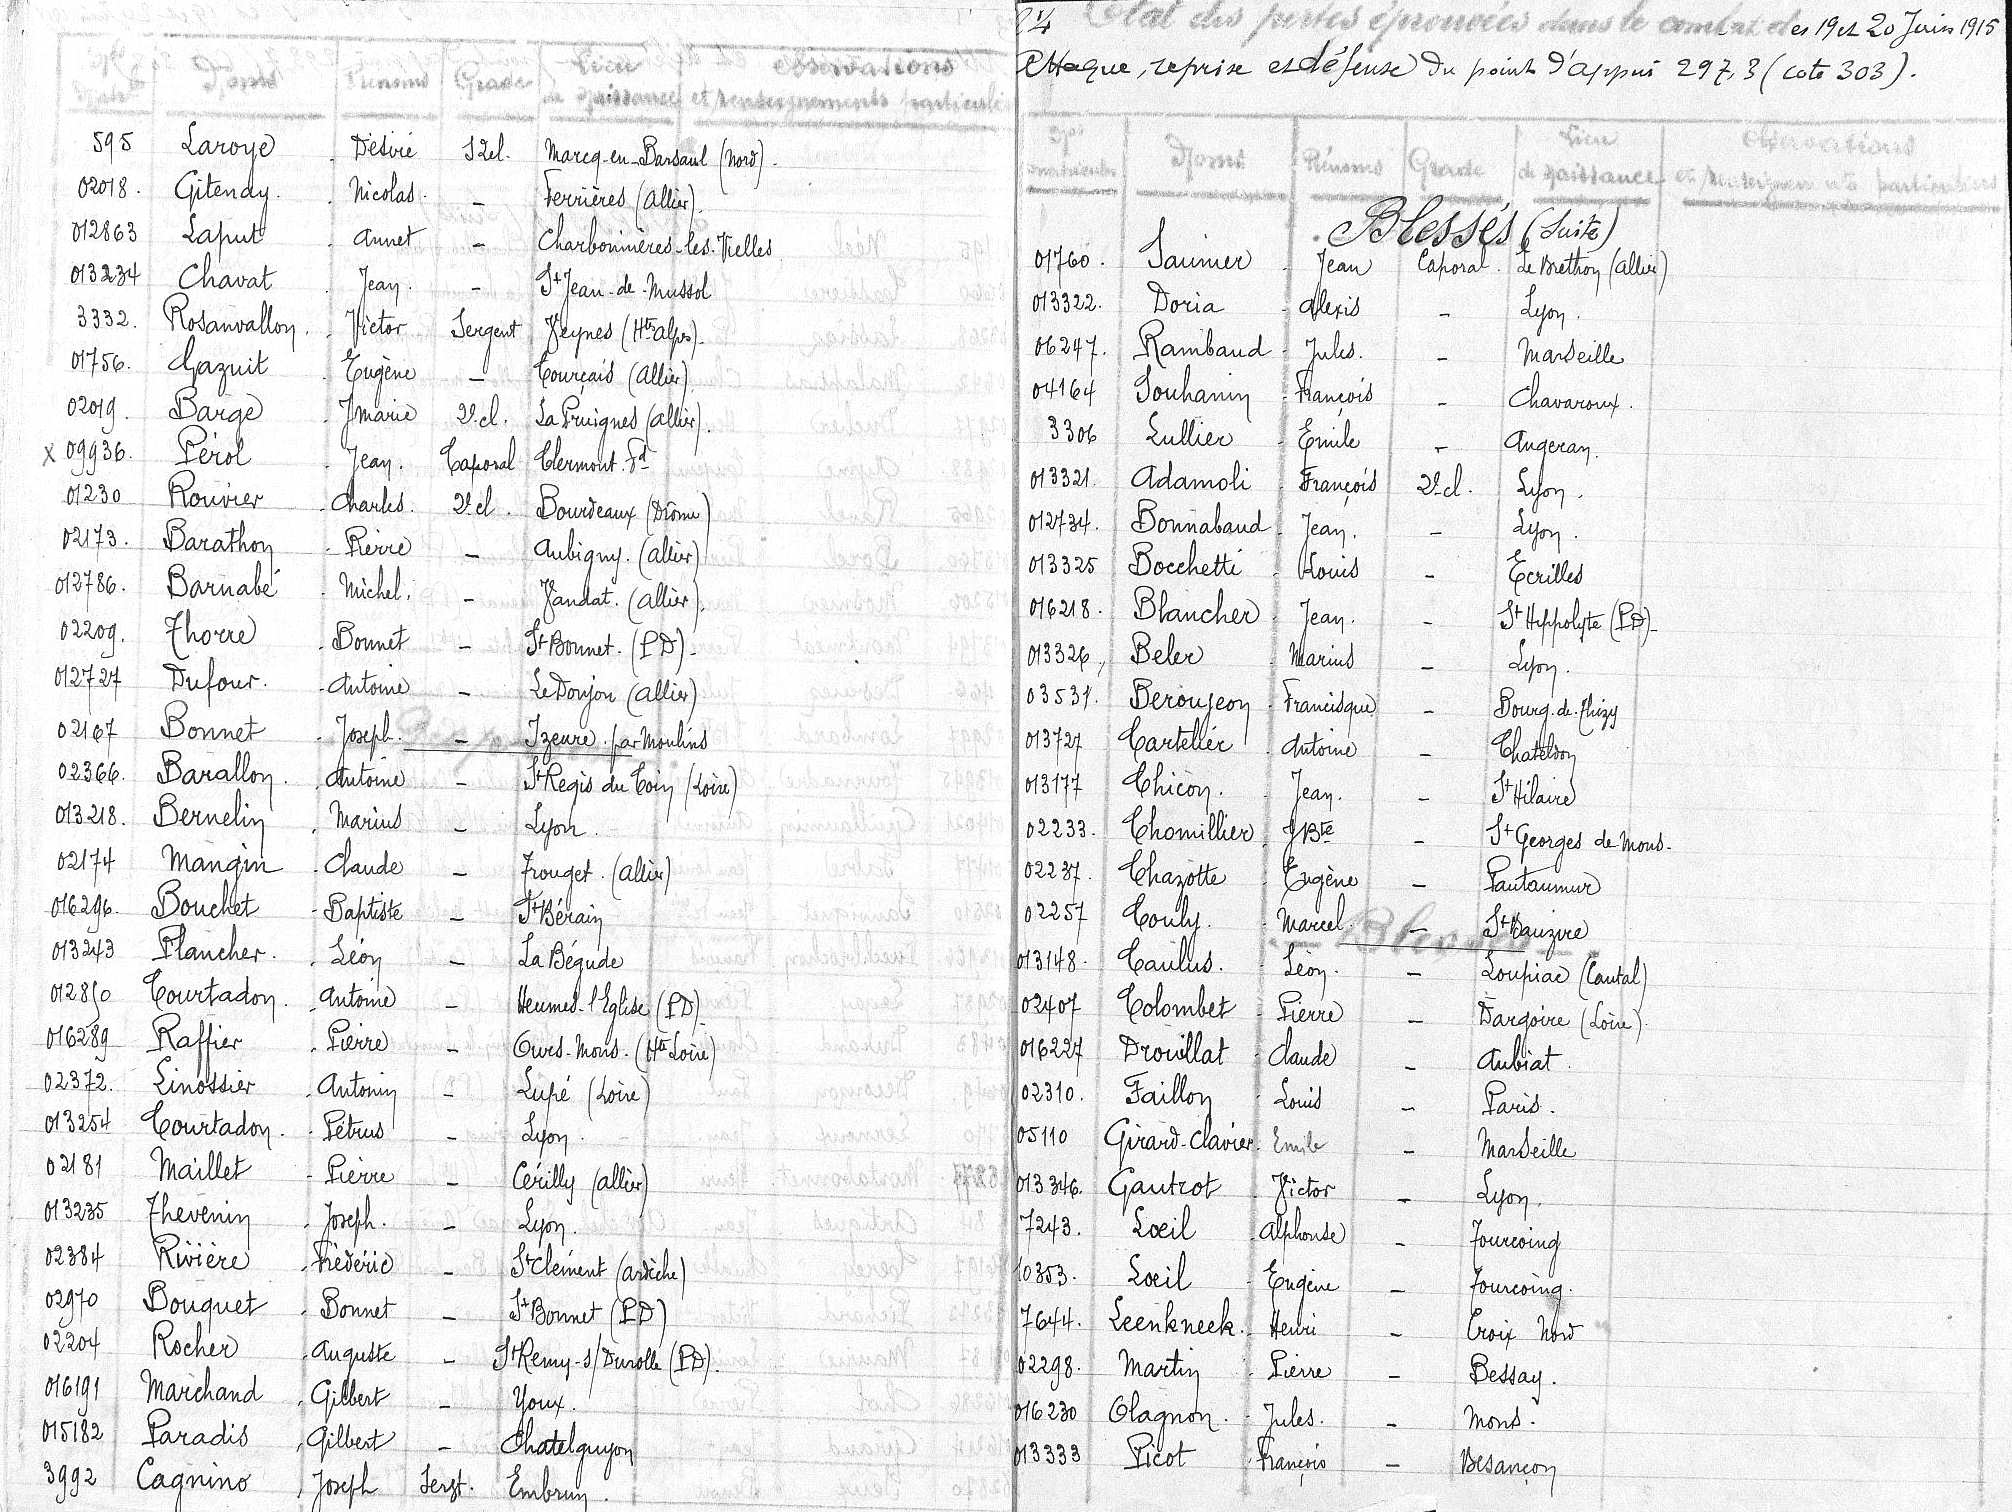 Nos matricules Noms Prénoms Grade Lieu de naissance Observations et renseignements particuliers
595 Laroye Désiré S2cl. Marcq-en-Barsaul (Nord)
02018. Gitenay. Nicolas. - Ferrières (Allier).
012863 Laput Annet - Charbonnières-les-Vielles
013234 Chavat Jean. - St Jean-de-Mussol
3332. Rosanvallon Victor Sergent Veynes (Htes Alpes)
01756. Gazuit Eugène - Courçais (Allier)
02019. Barge Jmarie 2e cl. La Pruignes (Allier).
x 09936. Pérol Jean. Caporal Clermont-Fd
01230 Rouvier Charles. 2e cl. Bourdeaux (Drôme)
02173. Barathon Pierre - Aubigny. (Allier)
012786. Barnabé Michel. - Vandat. (Allier).
02209. Thorre Bonnet - St Bonnet. (PD)
012727 Dufour. Antoine - Le Donjon (Allier)
02167 Bonnet Joseph. - Izeure par Moulins
02366. Barallon. Antoine - St Régis du Coin (Loire)
013218. Bernelin Marius - Lyon.
02174 Mangin Claude - Trouget. (Allier)
016296. Bouchet Baptiste - St Bérain
013243 Plancher. Léon - La Bégude
012850 Courtadon. Antoine - Heumes-l'Eglise (PD)
016289 Raffier Pierre - Ours-Mons. (Hte Loire)
02372. Linossier Antonin - Lupé (Loire)
013254 Courtadon. Pétrus - Lyon.
02181 Maillet Pierre - Cérilly (Allier)
013235 Thevenin Joseph. - Lyon.
02384 Rivière Frédéric - St Clément (Ardèche)
02970 Bouquet Bonnet - St Bonnet (PD)
02204 Rocher Auguste - St Remy-s/Durolle (PD).
016191 Marchand Gilbert - Youx.
015182 Paradis Gilbert - Chatelguyon
3992 Cagnino Joseph Sergt. Embrun.
Etat des pertes éprouvées dans le combat des 19 et 20 Juin 1915
Attaque, reprise et défense du point d'appui 297,3 (cote 303).
Nos matricules Noms Prénoms Grade Lieu de naissance Observations et renseignements particuliers
Blessés (Suite)
01760. Saunier Jean Caporal. Le Brethon (Allier)
013322. Doria Alexis - Lyon.
06247. Rambaud Jules. - Marseille
04164 Souhanin François - Chavaroux.
3306 Lullier Emile - Augeran.
013321. Adamoli François 2e cl. Lyon.
012734. Bonnabaud Jean. - Lyon.
013325 Bocchetti Louis - Ecrilles
016218. Blancher Jean. - St Hippolyte (PD)
013326, Beler Marius - Lyon.
03531. Beroujeon Francisque - Bourg-de-Thizy
013727 Cartelier Antoine - Chateldon
013177 Chicon. Jean. - St Hilaire
02233. Chomillier JBte - St Georges de Mons.
02237. Chazotte Eugène - Pautaumur
02257 Couly. Marcel. - St Dauzire
Blessés
013148. Caulus. Léon. - Loupiac (Cantal)
02407 Colombet Pierre - Dargoire (Loire)
016227 Drouillat Claude - Aubiat.
02310. Faillon Louis - Paris.
05110 Girard-Clavier Emile - Marseille
013346. Gautrot Victor - Lyon.
7243. Lœil Alphonse - Tourcoing
10353. Lœil Eugène - Tourcoing.
7644. Leenkneck. Henri - Croix Nord
02298. Martin Pierre - Bessay.
016230 Olagnon. Jules. - Mons.
013333 Picot François - Besançon